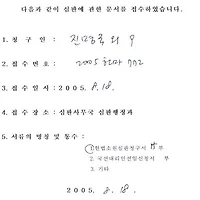 다음과 같이 심판에 관한 문서를 접수하였습니다.
1. 청 구 인 : 진 외 9
2. 접 수 번 호 : 2005 헌마 772
3. 접 수 일 시 : 2005. 8. 18.
4. 접 수 장 소 : 심판사무국 심판행정과
5. 서류의 명칭 및 통수 :
1. 헌법소원심판청구서 부
2. 국선대리인선임신청서 부
3. 기타
2005. 8. 18.